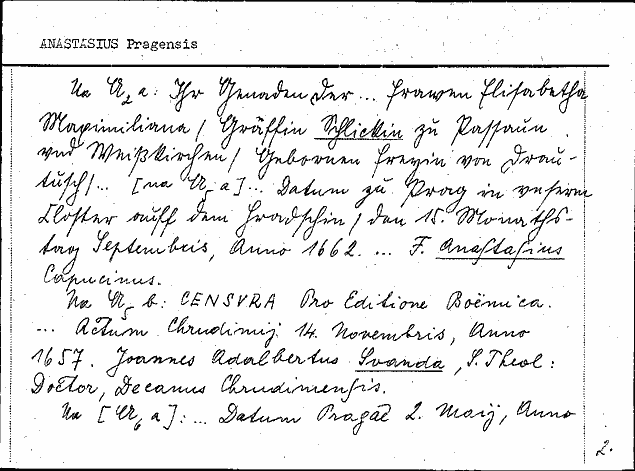 ANASTASIUS Pragensis
Na A2 a: Ihr Genaden Der ... frawen Elisabetha
Maximiliana / Gräffin Schlickin zu Passaun
vnd Weißkirchen / Gebornen freyin von Drau-
tusch / ... [na A5 a] ... Datum zu Prag in vnserm
Closter auff dem Hradschin / den 15. Monaths-
tag Septembris, Anno 1662. ... F. Anastasius
Capucinus.
Na A5 b: CENSVRA Pro Editione Boëmica.
... Actum Chrudimij 14. Novembris, Anno
1657. Joannes Adalbertus Svanda, S. Theol:
Doctor, Decanus Chrudimensis.
Na [A6 a]: ... Datum Pragae 2. Maij, Anno
2.